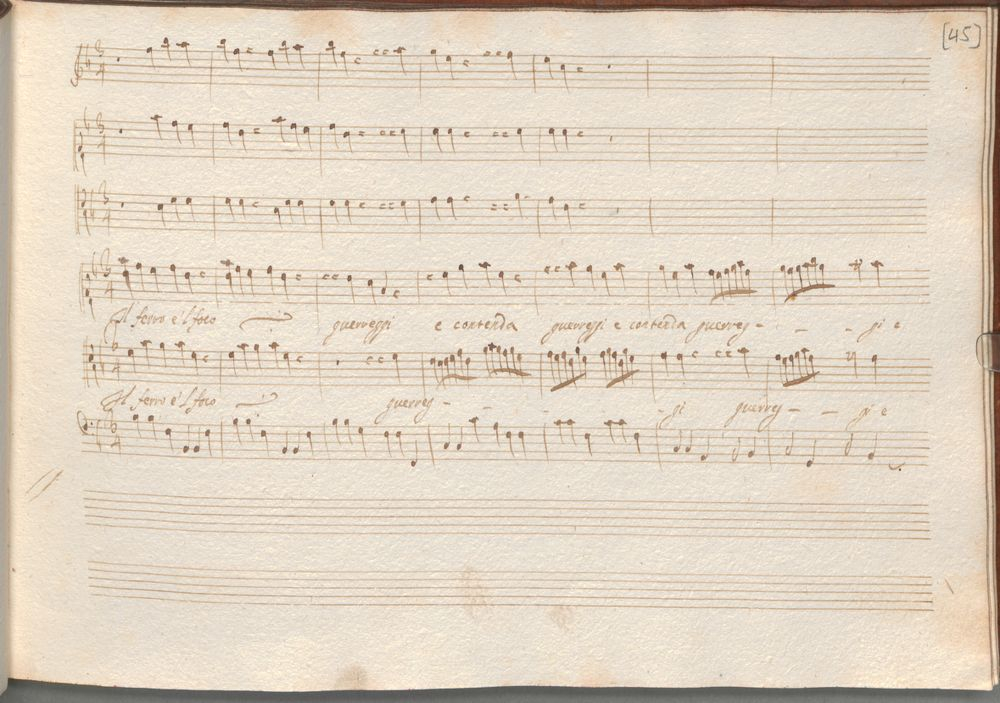 [45]
Il ferro e'l foco guerreggi e contenda guerreggi e contenda guerreg - - - gi e
Il ferro e'l foco guerreg - - - - gi guerreg - - gi e